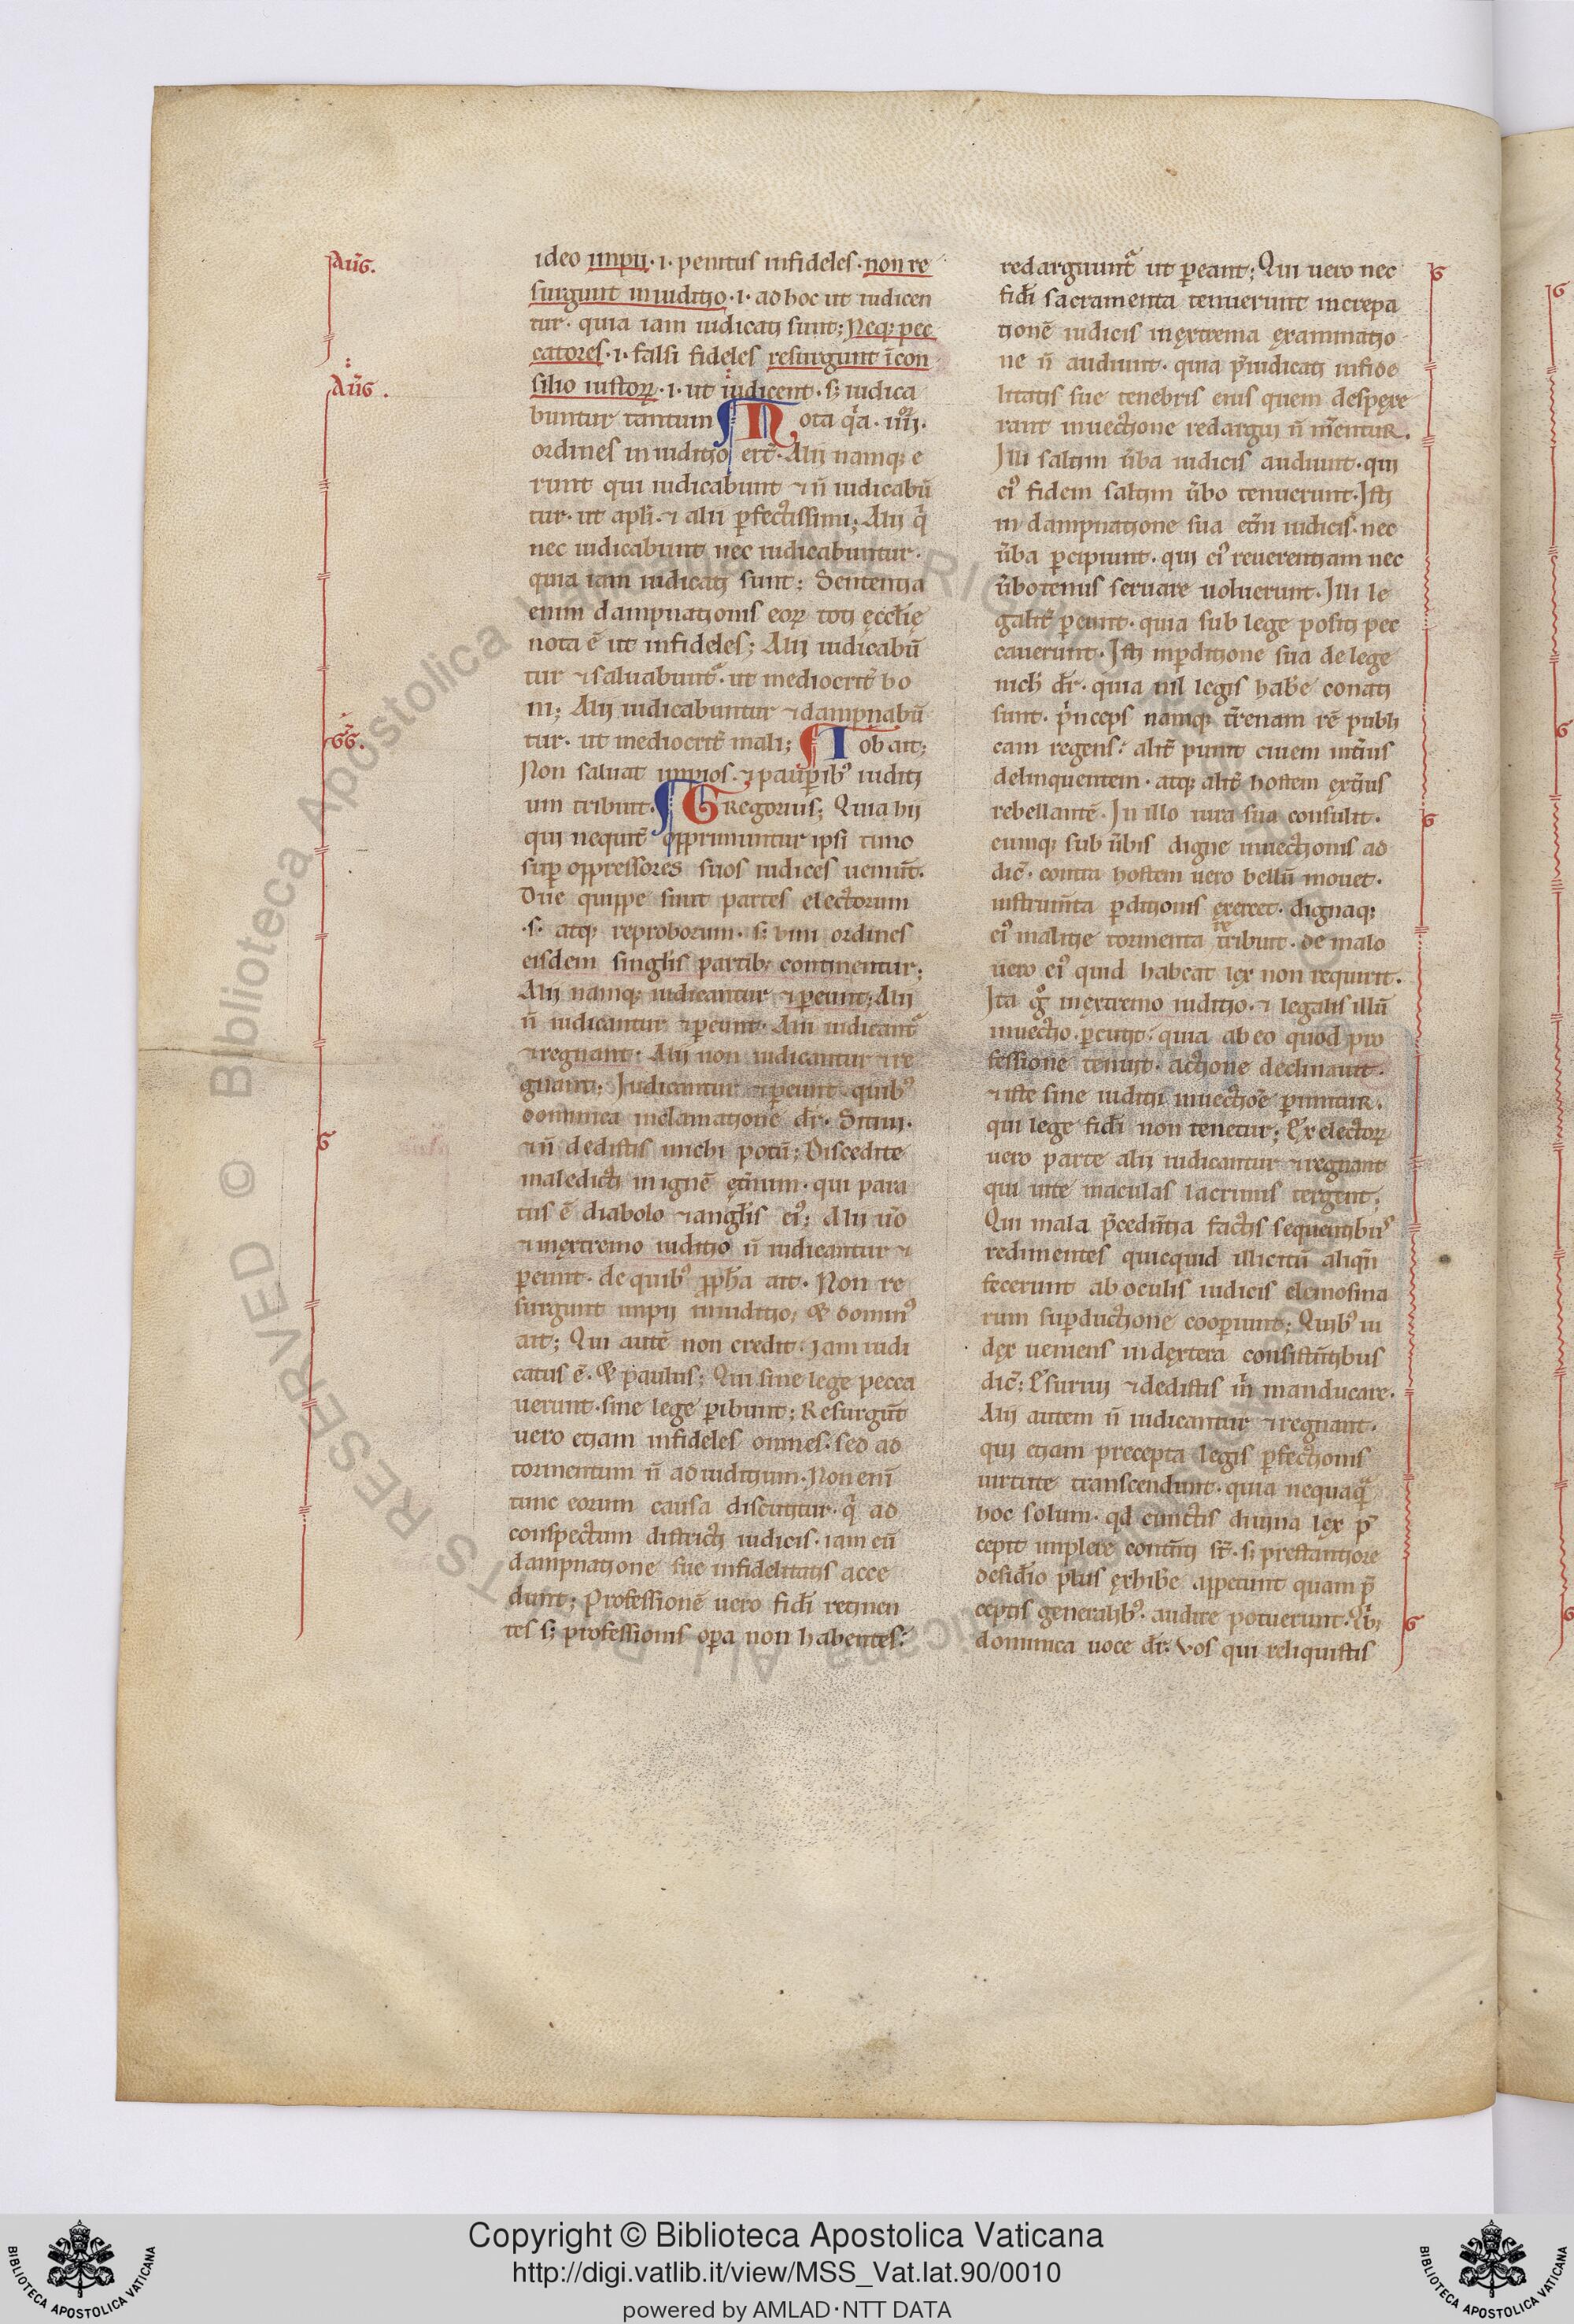 Aug̃.
ideo impii ·i· penitus infideles · non re
surgunt in iuditio ·i· ad hoc ut iudicen
tur · quia iam iudicati sunt; Neq; pec
catores ·i· falsi fideles resurgunt ĩ con
Aug̃.
silio iustoꝝ ·i· ut iudicent · s; iudica
buntur tantum ¶ Nota q̃a · iiiior ·
ordines in iuditio erũt · Alii namq; e
runt qui iudicabunt ⁊ ñ iudicabũ
tur · ut apłi · ⁊ alii ꝑfectissimi; Alii q̃
nec iudicabunt nec iudicabuntur ·
quia iam iudicati sunt; Sententia
enim dampnationis eoꝝ toti ęccłię
nota ẽ ut infideles; Alii iudicabũ
tur ⁊ saluabunt᷑ · ut mediocrit̃ bo
ni; Alii iudicabuntur ⁊ dampnabũ
GG̃.
tur · ut mediocrit̃ mali; ¶ Iob ait;
Non saluat impios · ⁊ pauꝑibꝰ iuditi
um tribuit · ¶ Gregorius; Quia hii
qui nequit̃ opprimuntur ipsi tunc
suꝑ oppressores suos iudices ueniũt ·
Due quippe sunt partes electorum
·s· atq; reproborum · s; bini ordines
eisdem singłis partib; continentur;
Alii namq; iudicantur ⁊ ꝑeunt; Alii
ñ iudicantur ⁊ ꝑeunt · Alii iudicant᷑
⁊ regnant; Alii non iudicantur ⁊ re
gnant; Iudicantur ⁊ ꝑeunt quibꝰ
dominica inclamatione dr̃ · Sitiui ·
G
⁊ ñ dedistis michi potũ; Discedite
maledicti in ignẽ ęt̃num · qui para
tus ẽ diabolo ⁊ angłis eiꝰ; Alii ũo
⁊ in extremo iuditio ñ iudicantur ⁊
ꝑeunt · de quibꝰ ꝓpha ait · Non re
surgunt impii in iuditio; & dominꝰ
ait; Qui autẽ non credit · iam iudi
catus ẽ · & paulus; Qui sine lege pecca
uerunt · sine lege ꝑibunt; Resurgũt
uero etiam infideles omnes · sed ad
tormentum ñ ad iuditium · Non enĩ
tunc eorum causa discutitur · q̃ ad
conspectum districti iudicis · iam cũ
dampnatione sue infidelitatis acce
dunt; Professionẽ uero fidi̾ retinen
tes s; professionis oꝑa non habentes;
G
redarguunt᷑ ut ꝑeant; Qui uero nec
fidi̾ sacramenta tenuerunt increpa
tionẽ iudicis in ęxtrema ęxaminatio
ne ñ audiunt · quia p̃iudicati infide
litatis sue tenebris eius quem despexe
rant inuectione redargui ñ m̃entur.
Illi saltim ũba iudicis audiunt · qui
eiꝰ fidem saltim ũbo tenuerunt · Isti
in dampnatione sua et̃ni iudicis · nec
ũba ꝑcipiunt · qui eiꝰ reuerentiam nec
ũbotenus seruare uoluerunt · Illi le
galit̃ ꝑeunt · quia sub lege positi pec
cauerunt · Isti in ꝑditione sua de lege
nich̾ dr̃ · quia nil legis hab̃e conati
sunt · p̃nceps namq; t̃renam rẽ publi
cam regens; alit̃ punit ciuem int̃ius
delinquentem · atq; alit̃ hostem ext̃ius
G
rebellantẽ · In illo iura sua consulit ·
eumq; sub ũbis digne inuectionis ad
dic̃ · contra hostem uero bellũ mouet ·
instrum̃ta ꝑditionis exercet · dignaq;
eiꝰ malitie tormenta retribuit · de malo
uero eiꝰ quid habeat lex non requirit ·
Ita g̊ in extremo iuditio · ⁊ legalis illũ
inuectio ꝑcutit; quia ab eo quod pro
fessione tenuit · actione declinauit ·
⁊ iste sine iuditii inuectiõe ꝑimitur.
qui lege fidi̾ non tenetur; Ex electoꝝ
uero parte alii iudicantur ⁊ regnant
qui uite maculas lacrimis tergent;
Qui mala p̃ced̃tia factis sequentibꝰ
redimentes quicquid illicitũ aliqñ
fecerunt ab oculis iudicis elemosina
rum suꝑductione cooꝑiunt; Quibꝰ iu
dex ueniens in dęxtera consist̃tibus
dic̃; Esuriui ⁊ dedistis m̃ manducare ·
Alii autem ñ iudicantur ⁊ regnant ·
qui etiam precepta legis ꝑfectionis
uirtute transcendunt · quia nequaq̃
hoc solum · qd cunctis diuina lex p̃
cepit implere cont̃ti st̃ · s; prestantiore
desid̃io plus exhib̃e appetunt quam p̃
G
ceptis generalibꝰ · audire potuerunt · Qib;
dominica uoce dr̃; Vos qui reliquistis
G
G
G
© Biblioteca Apostolica Vaticana ALL RIGHTS RESERVED
Copyright © Biblioteca Apostolica Vaticana
http://digi.vatlib.it/view/MSS_Vat.lat.90/0010
powered by AMLAD·NTT DATA
BIBLIOTECA APOSTOLICA VATICANA
BIBLIOTECA APOSTOLICA VATICANA